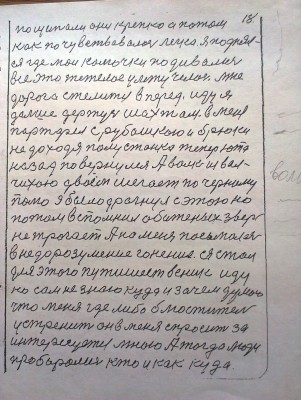 18.
пощипали они крепко а потом
как почувствовался легка. Я поднял-
ся где мои комочки подивался
все это тяжелое улетучелося мне
дорога стелит вперед, иду я
дальше держуи шах там. в меня
с рубашкою и брюки
не доходя полустанка теперюта
назад повернулся А волк и вол-
чихою двоем шегает по черному
Я было дрогнул с этого но
потом вспомнил обитеных звер
не трогает А на меня посыпался
в недоразумение гонение. ся стал
для этого путишиственик иду
но сам не знаю куда и зачем думаю
что меня где либо блюстител
устренит он в меня спросит за
интересуется мною А тогда люди
кто и как куда.